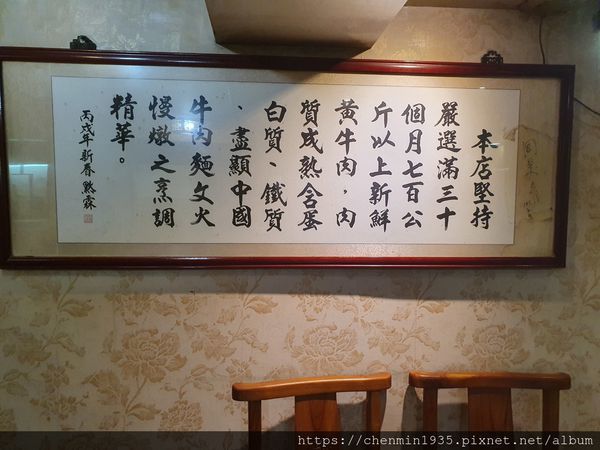 本店堅持
嚴選滿三十
個月七百公
斤以上新鮮
黃牛肉，肉
質成熟含蛋
白質、鐵質
、盡顯中國
牛肉麵文火
慢燉之烹調
精華。
丙戌年新春
https://chenmin1935.pixnet.net/album